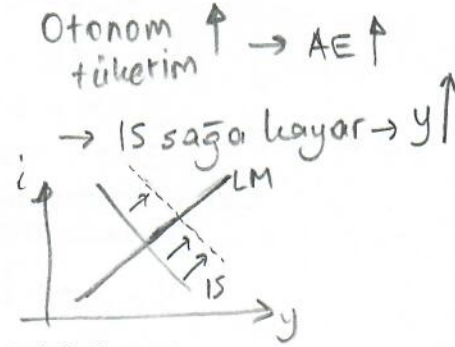 Otonom ↑ → AE ↑
tüketim
→ IS sağa kayar → y ↑
i
LM
IS
y